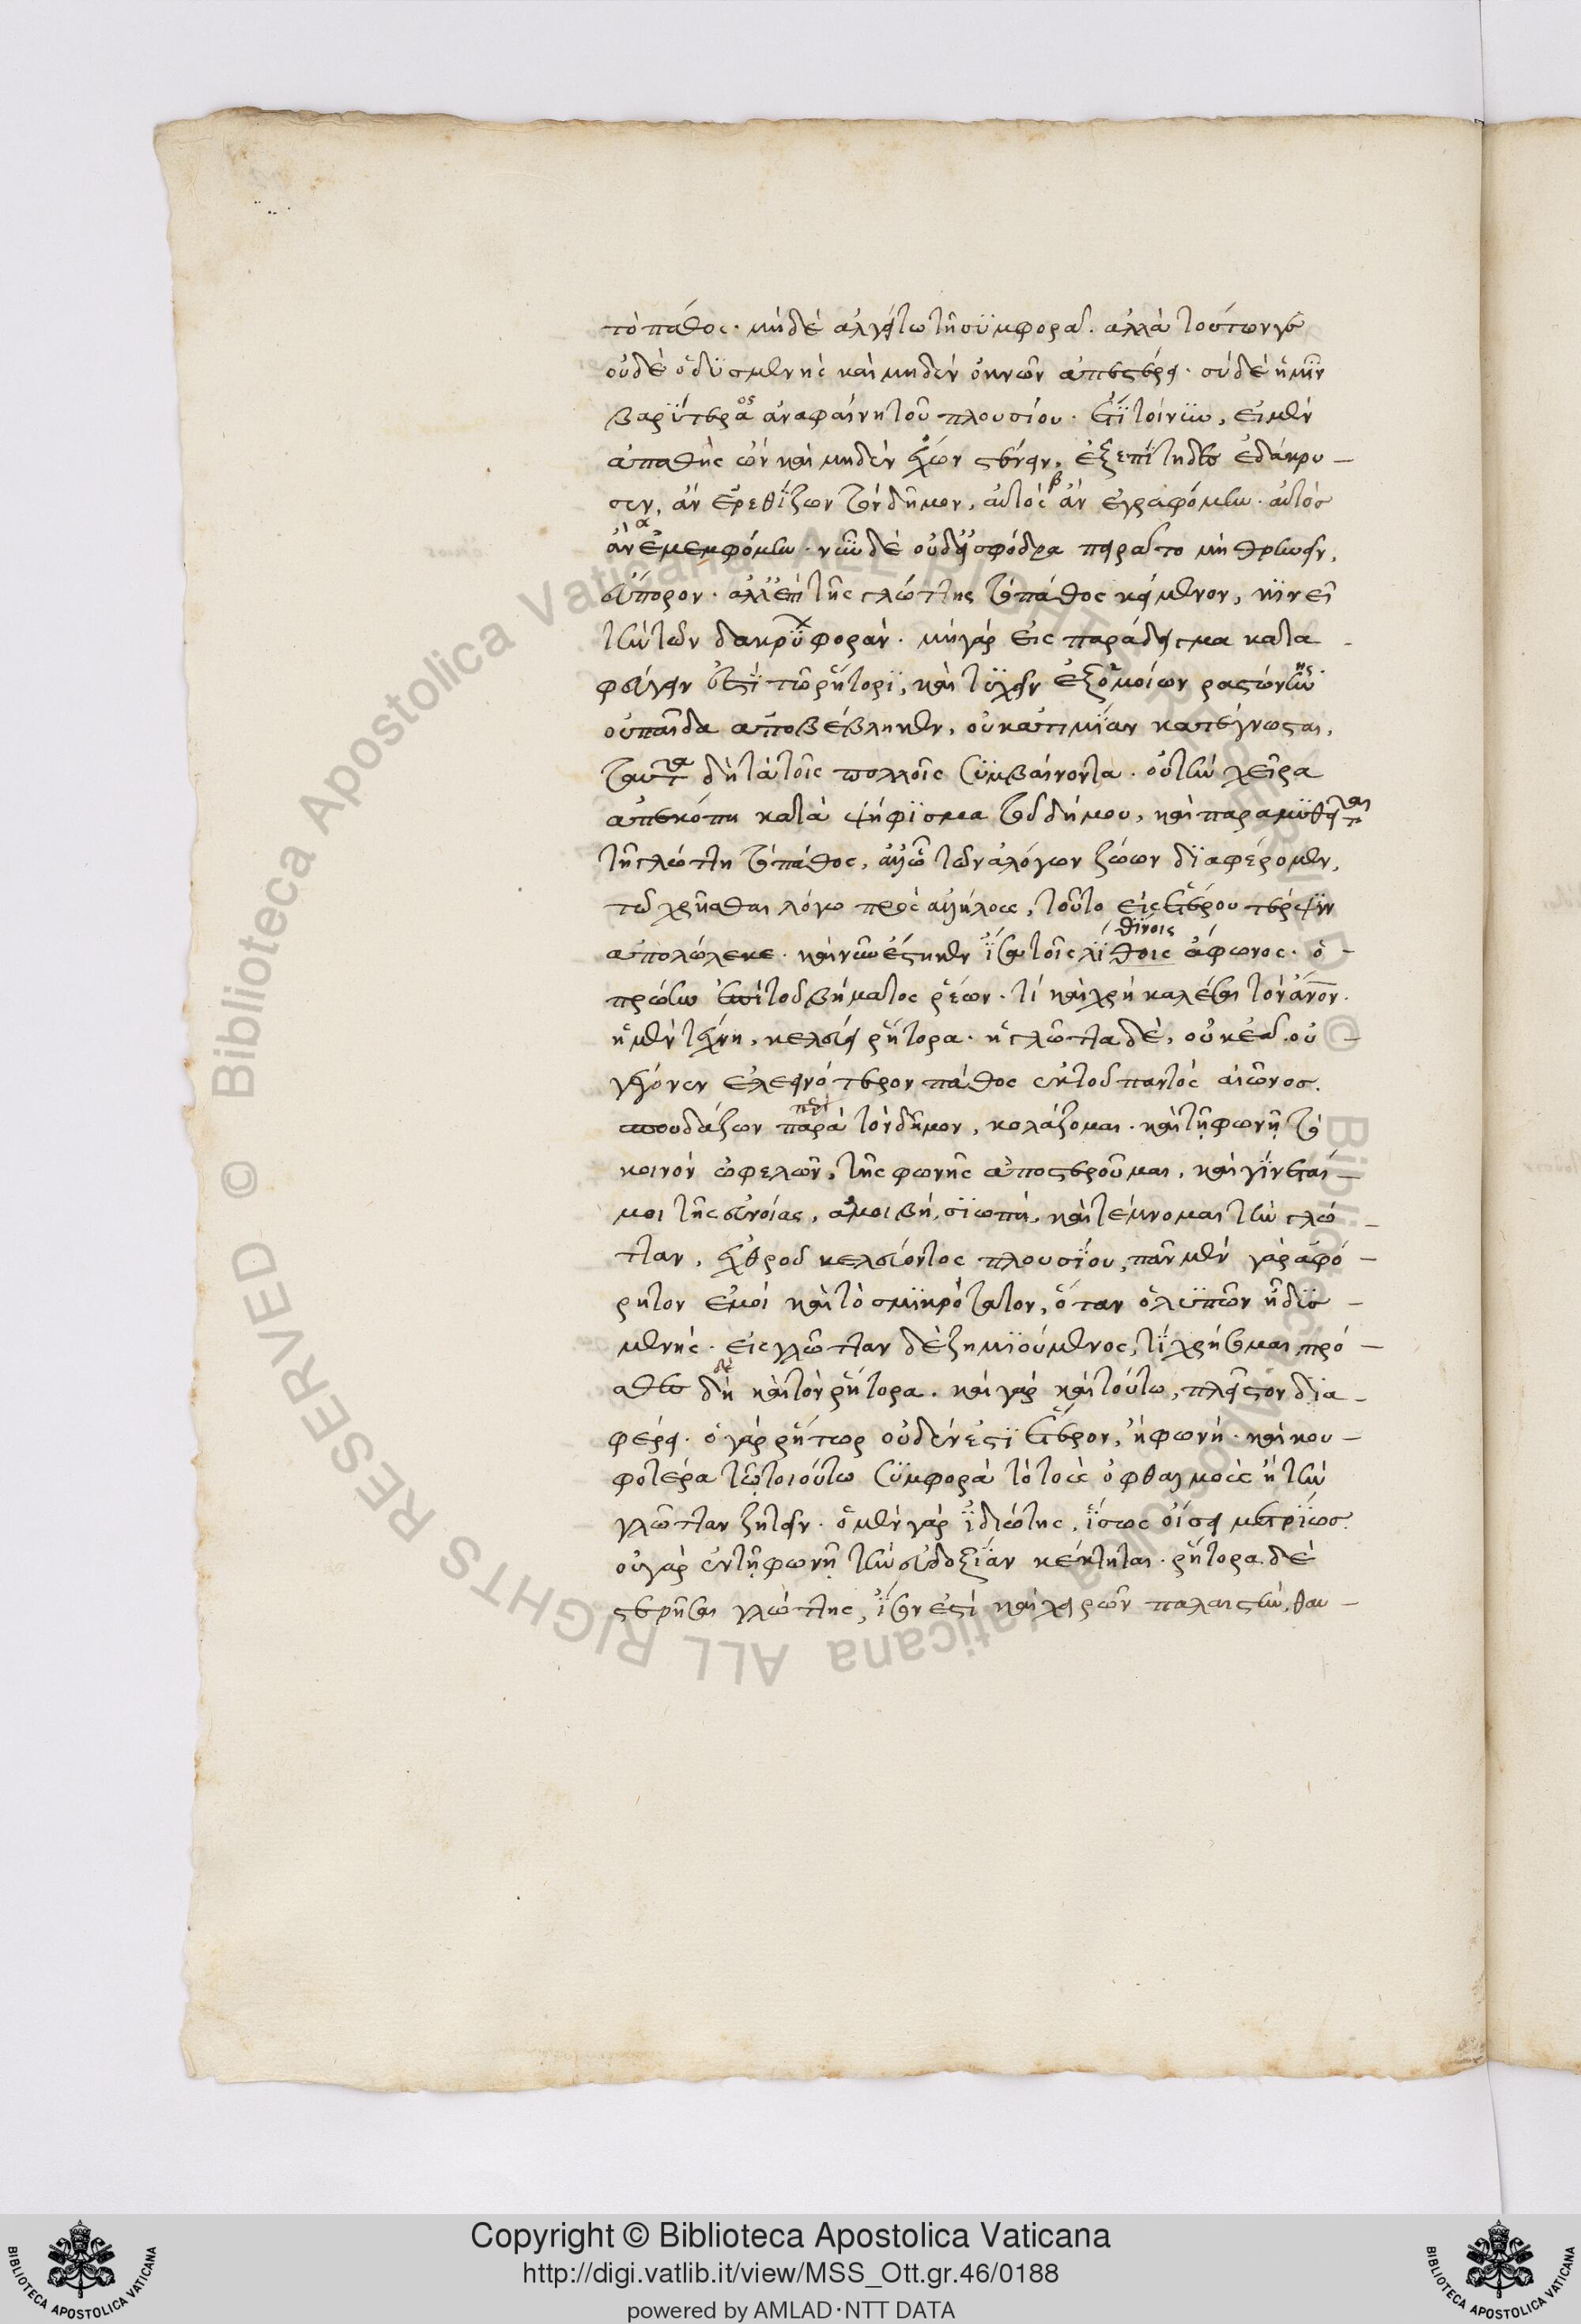 τὸ πάθος. μηδὲ ἀλγείτω τῆ συμφορᾶ. ἀλλὰ τούτων γε
οὐδὲ ὁ δυσμενὴς καὶ μηδὲν ὀκνῶν ἀπεστέρει. σὺ δὲ ἡμῖν
βαρύτερα ος ἀναφαίνη τοῦ πλουσίου. ἔτι τοίνυν, εἰ μὲν
ἀπαθὴς ὢν καὶ μηδὲν ἔχων στένειν, ἐξεπίτηδες ἐδάκρυ –
σεν, ἂν ἐρεθίζων τὸν δῆμον, αὐτὸς β ἂν ἐγραφόμην. αὐτὸς
ἂν α ἐμεμφόμην. νῦν δὲ οὐδ' εἰ σφόδρα πειρᾶτο μὴ θρηνεῖν,
εὔπορον. ἀλλ' ἐπὶ τῆς γλώττης τὸ πάθος κείμενον, κινεῖ
τὴν τῶν δακρύ χ φοράν. μὴ γὰρ εἰς παράδειγμα κατα –
φεύγειν ἔστι τῷ ῥήτορι, καὶ τυχεῖν ἐξ ὁμοίων ῥαστώνην ης
οὐ παῖδα ἀποβέβληκεν, οὐκ ἀτιμίαν κατέγνωσται,
ταῦτα δὴ τὰ τοῖς πολλοῖς συμβαίνοντα. οὐ τὴν χεῖρα
ἀπεκόπη κατὰ ψήφισμα τοῦ δήμου, καὶ παραμυθεῖται
τῆ γλώττη τὸ πάθος, ἀλλ' ᾧ τῶν ἀλόγων ζώων διαφέρομεν,
τῷ χρῆσθαι λόγω πρὸς ἀλλήλους, τοῦτο εἰς ἑτέρου τέρψιν
ἀπολώλεκε. καὶ νῦν ἕστηκεν ἴσα τοῖς λίθοις θίνοις ἄφωνος. ὁ –
πρώην ἐπὶ τοῦ βήματος ῥέων. τί καὶ χρὴ καλέσαι τὸν ἄνον.
ἡ μὲν τέχνη, κελεύει ῥήτορα. ἡ γλῶττα δὲ, οὐκ ἐᾶ. οὐ –
γέγονεν ἐλεεινότερον πάθος ἐκ τοῦ παντὸς αἰῶνος.
σπουδάζων παρὰ περὶ τὸν δῆμον, κολάζομαι. καὶ τῇ φωνῇ τὸ
κοινὸν ὠφελῶν, τῆς φωνῆς ἀποστεροῦμαι, καὶ γίνεταί –
μοι τῆς εὐνοίας, ἀμοιβὴ, σιωπή. καὶ τέμνομαι τὴν γλῶ –
τταν, ἐχθροῦ κελεύοντος πλουσίου, πᾶν μὲν γὰρ ἀφό –
ρητον ἐμοὶ καὶ τὸ σμικρότατον, ὅταν ὁ λυπῶν ᾖ δυσ –
μενής. εἰς γλῶτταν δὲ ζημιούμενος, τί χρήσομαι, πρό –
σθες δὴ δὲ καὶ τὸν ῥήτορα. καὶ γὰρ καὶ τούτω, πλεῖστον δια –
φέρει. ὁ γὰρ ῥήτωρ οὐδέν ἐστι ἕτερον, ἢ φωνή. καὶ κου –
φοτέρα τῷ τοιούτω συμφορὰ τὸ τοὺς ὀφθαλμοὺς ἢ τὴν
γλῶτταν ζητεῖν. ὁ μὲν γὰρ ἰδιώτης, ἴσως οἴσει μετρίως.
οὐ γὰρ ἐν τῇ φωνῇ τὴν εὐδοξίαν κέκτηται. ῥήτορα δὲ
στερῆσαι γλώττης, ἴσον ἐστὶ καὶ χειρῶν παλαιστὴν, θαυ –
Copyright © Biblioteca Apostolica Vaticana
http://digi.vatlib.it/view/MSS_Ott.gr.46/0188
powered by AMLAD·NTT DATA